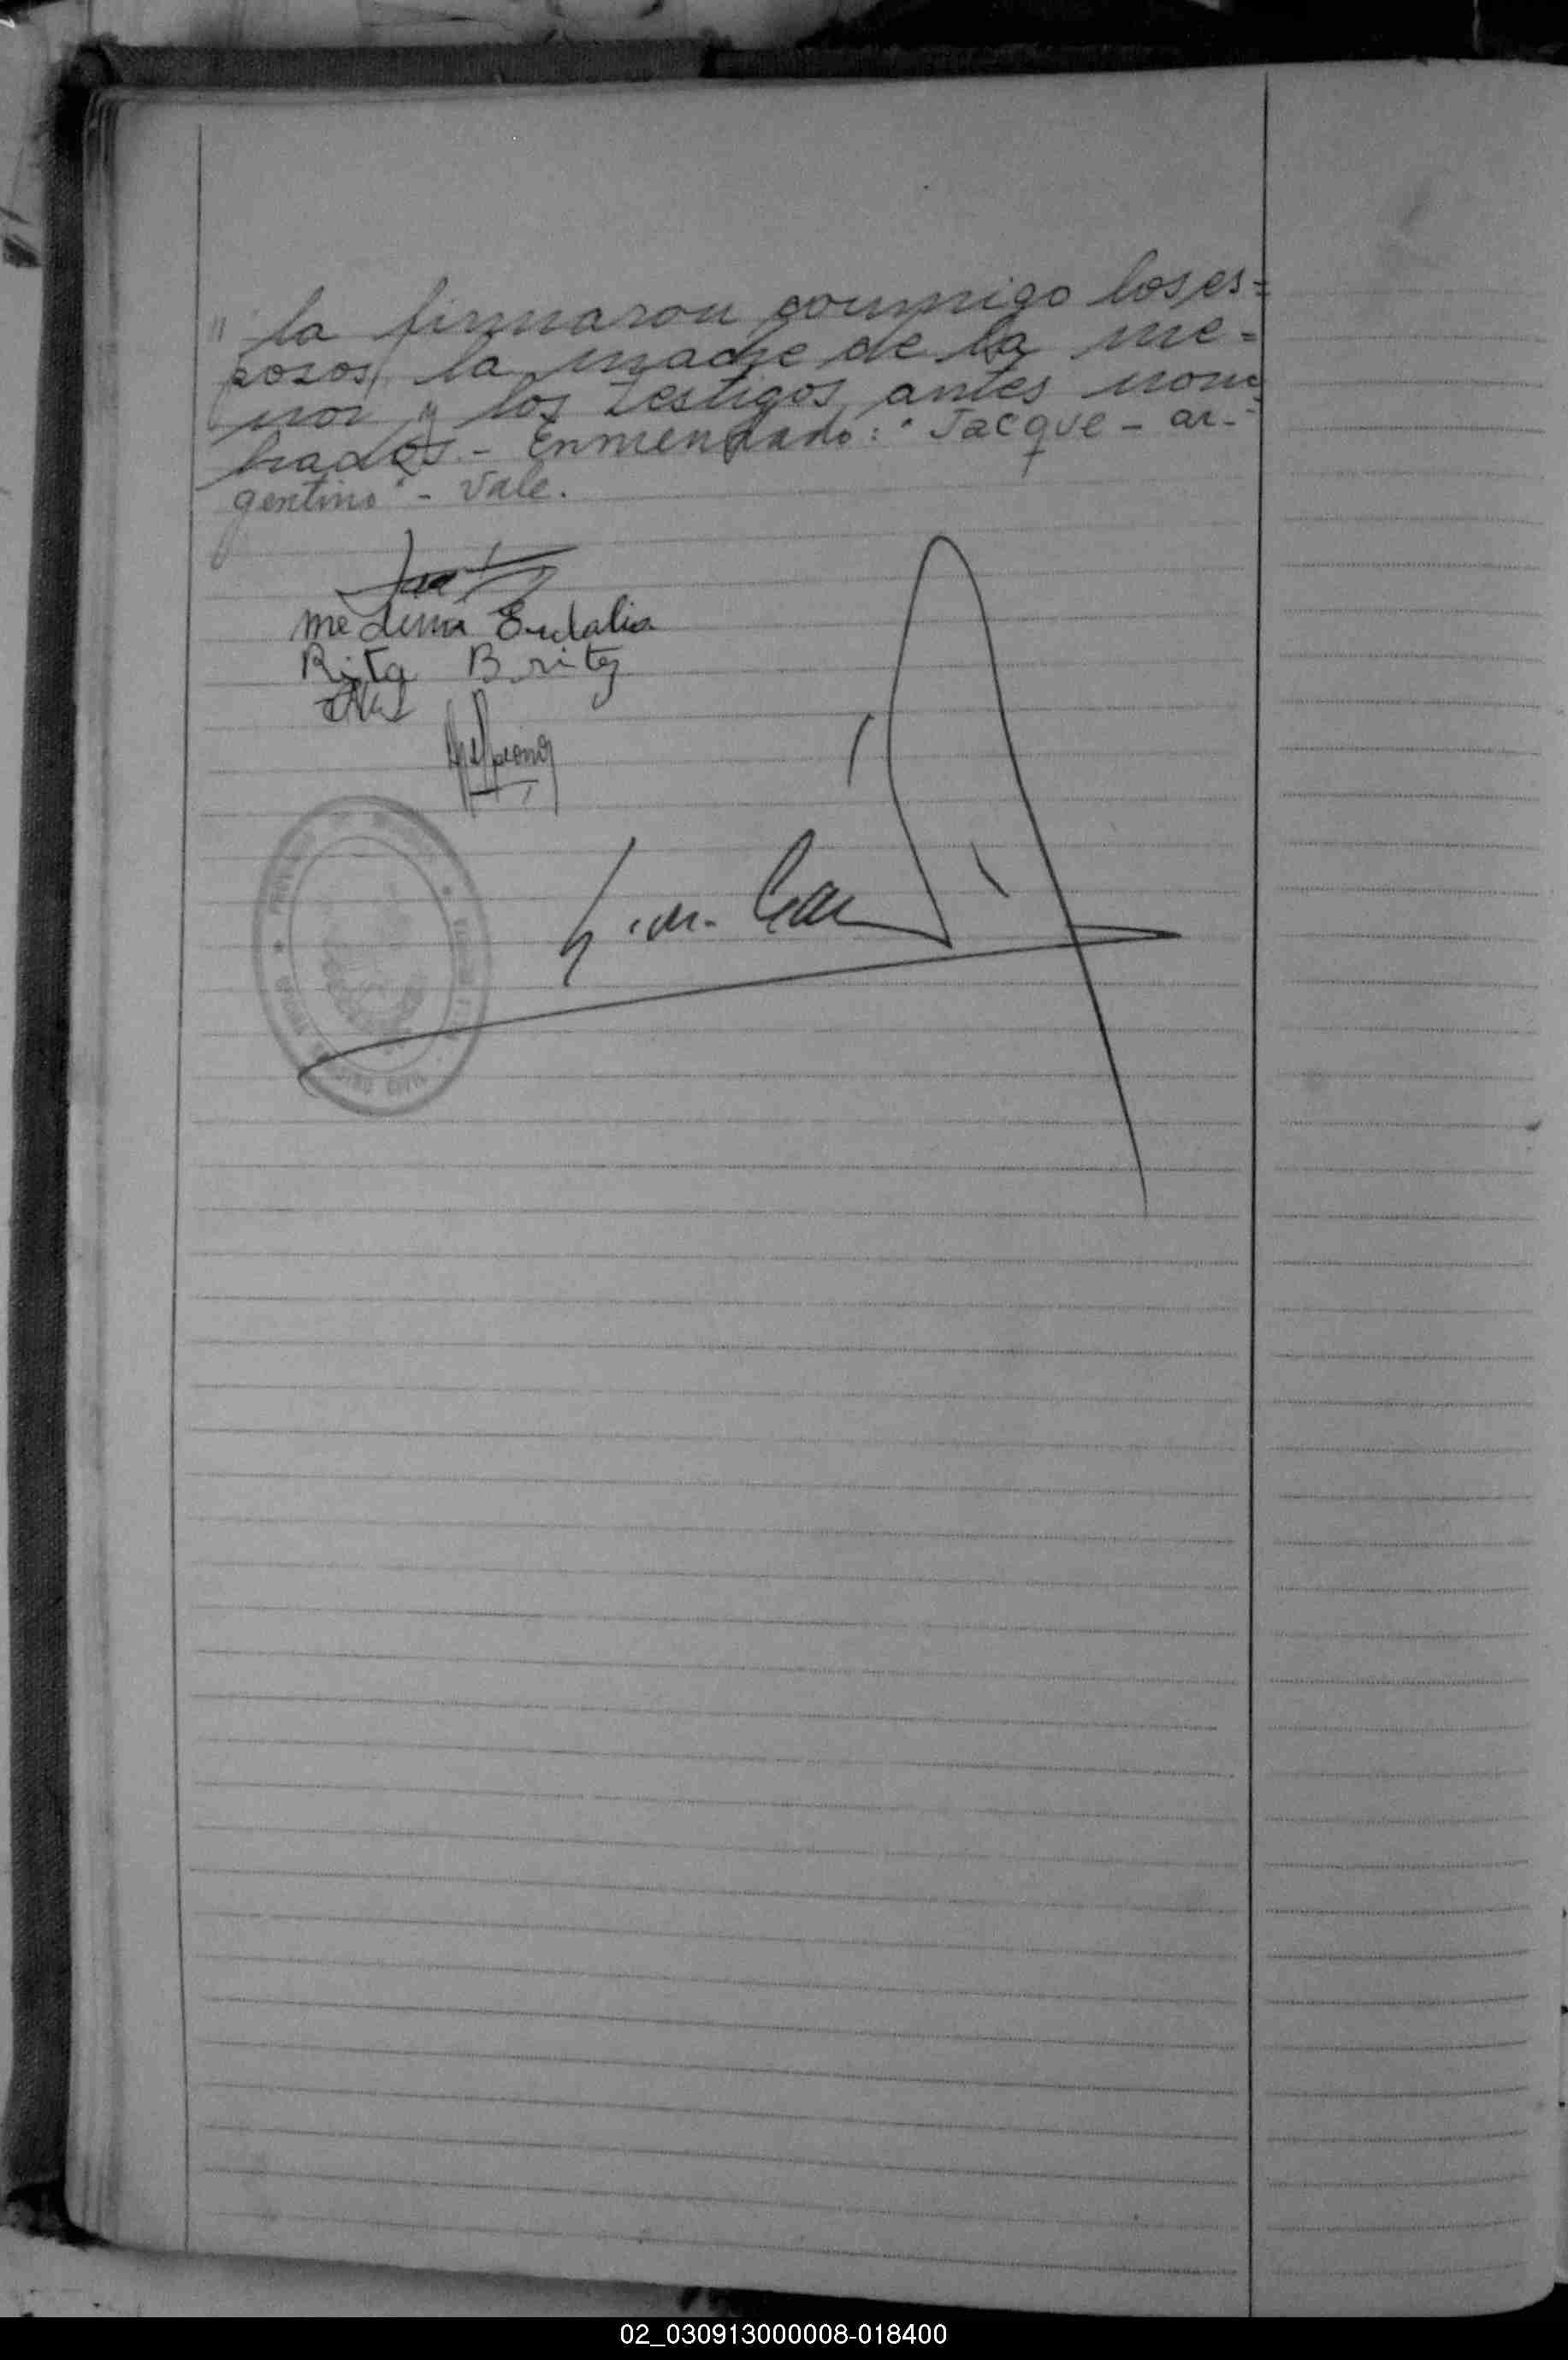 " la firmaron conmigo los es=
posos, la madre de la me=
nor y los testigos antes nom=
brados.- Enmendado: "Jacque - ar-
gentino" - Vale.
Medina Eudalia
Rita Britez
REGISTRO CIVIL
02_030913000008-018400